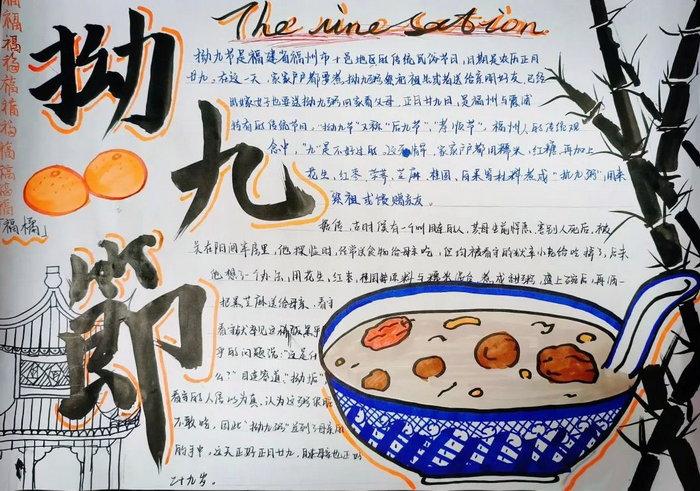 The nine sation
拗九節
福福福福福福福福福
福橘
拗九节是福建省福州市十邑地区的传统民俗节日，日期是农历正月
廿九。在这一天，家家户户都要煮拗九粥祭祖先或者送给亲朋好友，已经
出嫁女子也要送拗九粥回家看父母，正月廿九日，是福州与
特有的传统节日，"拗九节"又称"后九节"，"孝顺节"，福州人的传统观
念中，"九"是不好过的，这天清早，家家户户都用糯米，红糖，再加上
花生，红枣，荸荠，芝麻，桂圆，白果等材料煮成"拗九粥"，用来
祭祖或馈赠亲友。
据传，古时候有一个叫目连的人，其母生前悭吝，
关在阴间牢房里，他探监时，经常送食物给母亲吃，但均被看守的狱卒小鬼给吃掉了，后来
他想了一个办法，用花生，红枣，桂圆等原料与糯米混合，煮成甜粥，盛上碗后，再
把黑芝麻送给母亲，看守
看着
的问题说："这是什
么？"目连答道，"拗垢"
看守的人信以为真，认为这粥很脏
不敢吃，因此"拗九粥"送到了母亲
的手中，这天正好正月廿九，目连母亲也正好
二十九岁。